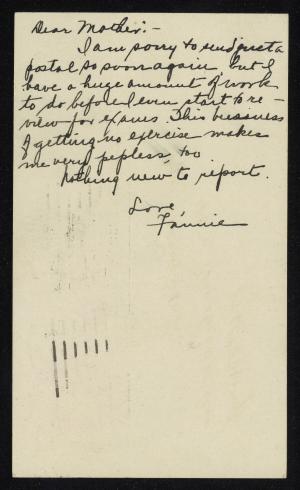 Dear Mother:-
I am sorry to send just a
postal so soon again but I
have a huge amount of work
to do before I even start to re-
view for exams. This bussness
of getting no exercise makes
me very pepless, too
Nothing new to report.
Love,
Fannie